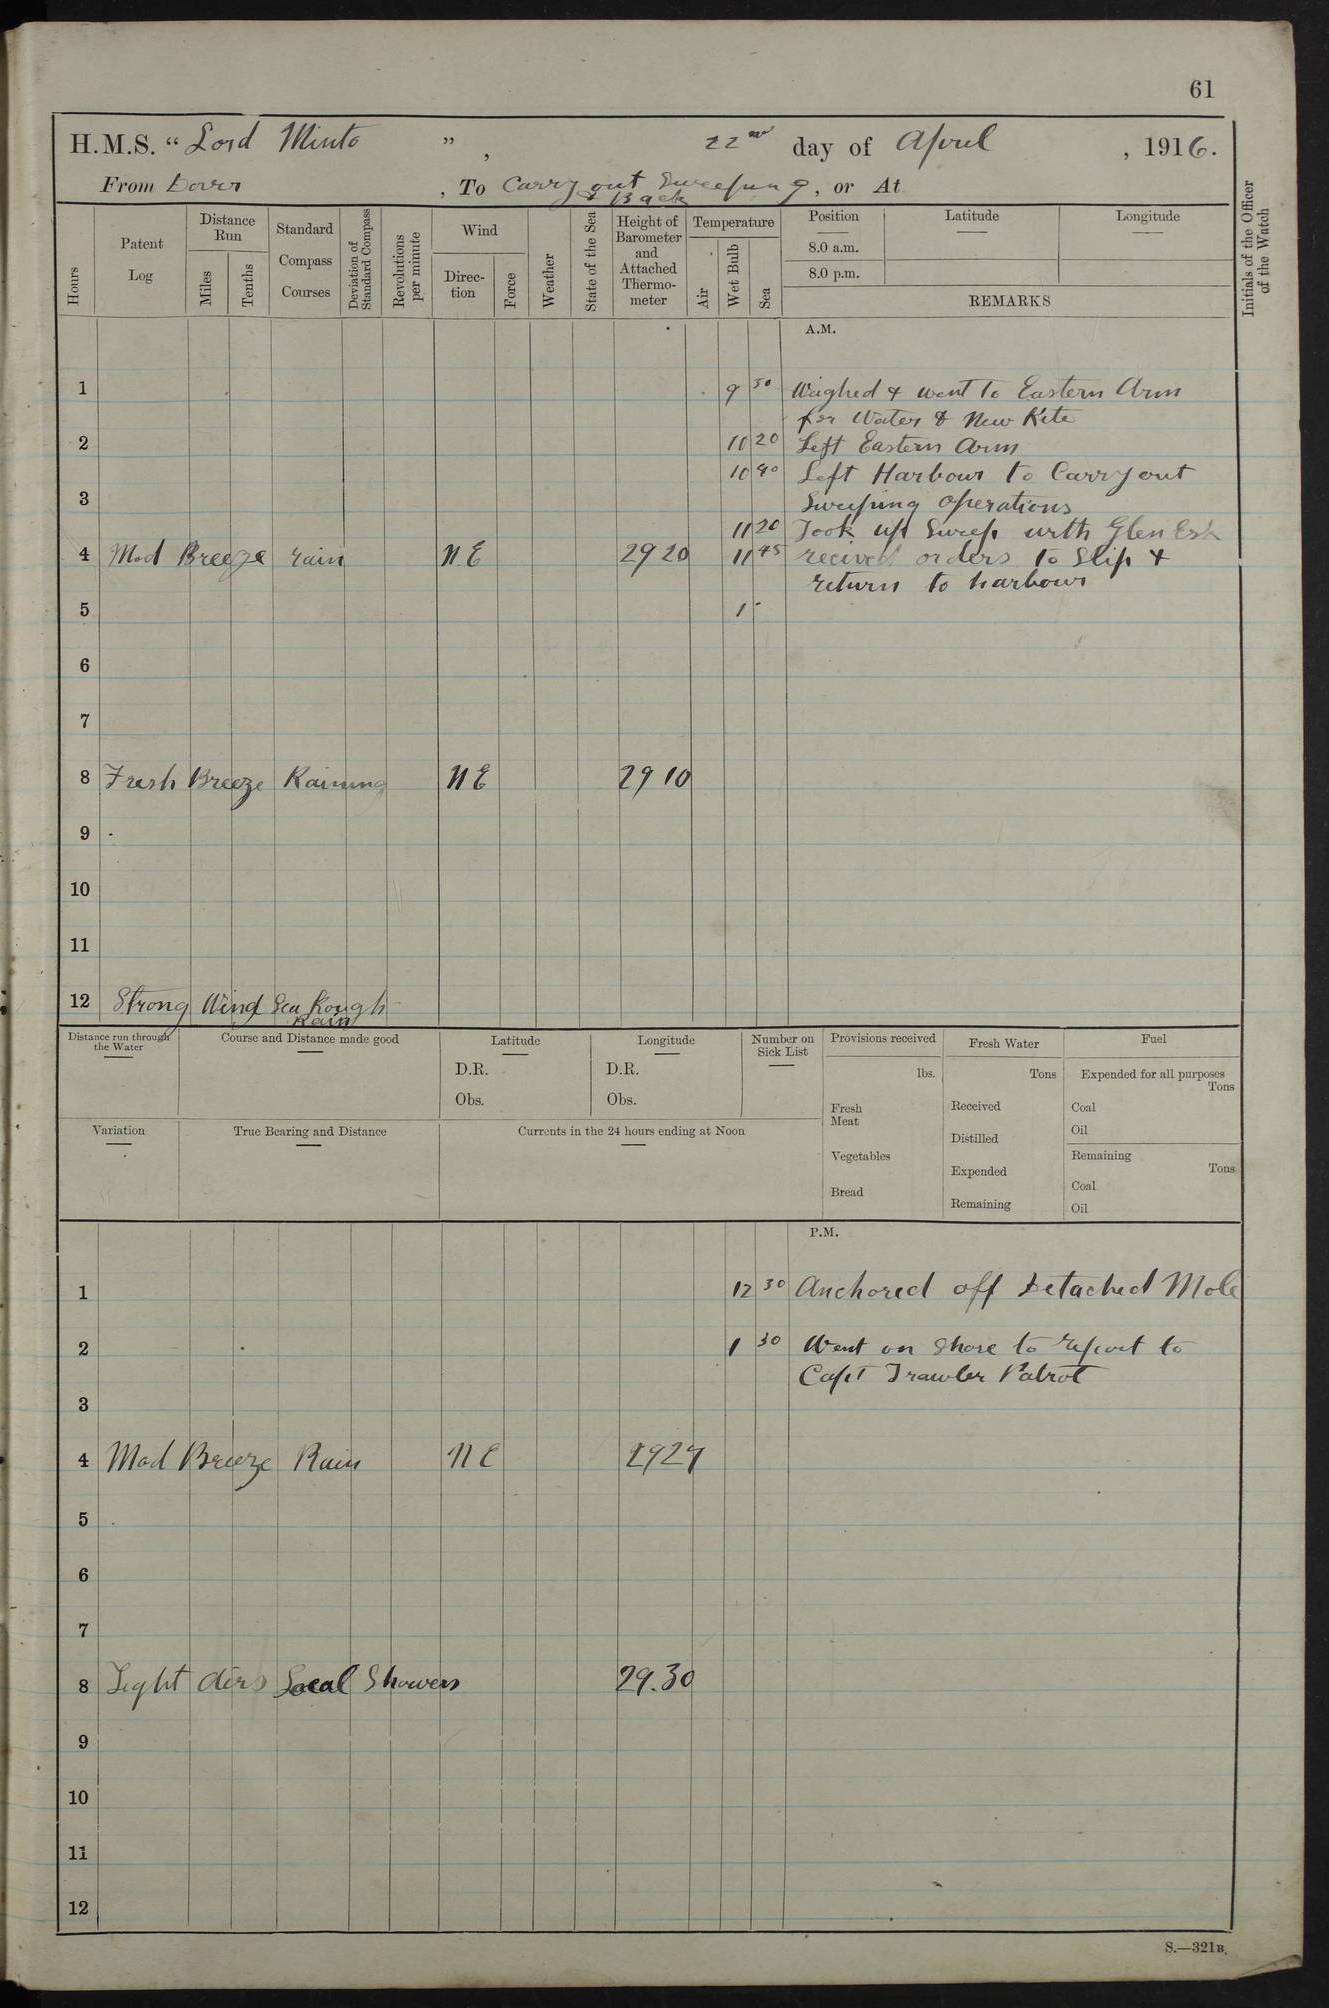 61
H.M.S. “ Lord Minto ” , 22nd day of April , 1916.
From Dover , To Carry out Sweeping , or At
& Back
Hours
Patent Log
Distance Run
Miles
Tenths
Standard Compass Courses
Deviation of Standard Compass
Revolutions per minute
Wind
Direction
Force
Weather
State of the Sea
Height of Barometer and Attached Thermometer
Temperature
Air
Wet Bulb
Sea
Position
8.0 a.m.
8.0 p.m.
Latitude
Longitude
REMARKS
Initials of the Officer of the Watch
A.M.
1 9 30 Weighed & went to Eastern Arm
for Water & New Kite
2 10 20 Left Eastern Arm
10 40 Left Harbour to Carry out
3 Sweeping operations
11 20 Took up Sweep with Glen Esk
4 Mod Breeze rain N.E 29 20 11 45 recived orders to Slip &
return to harbour
5 1 -
6
7
8 Fresh Breeze Raining N E 29 10
9
10
11
12 Strong Wind Sea Rough
Rain
Distance run through the Water
Course and Distance made good
Latitude
D.R.
Obs.
Longitude
D.R.
Obs.
Number on Sick List
Provisions received
lbs.
Fresh Meat
Vegetables
Bread
Fresh Water
Tons
Received
Distilled
Expended
Remaining
Fuel
Expended for all purposes
Tons
Coal
Oil
Remaining
Tons
Coal
Oil
Variation
True Bearing and Distance
Currents in the 24 hours ending at Noon
P.M.
1 12 30 Anchored off Detached Mole
2 1 30 Went on shore to report to
Capt Trawler Patrol
3
4 Mod Breeze Rain N E 2927
5
6
7
8 Light airs Local Showers 29.30
9
10
11
12
S.—321B.